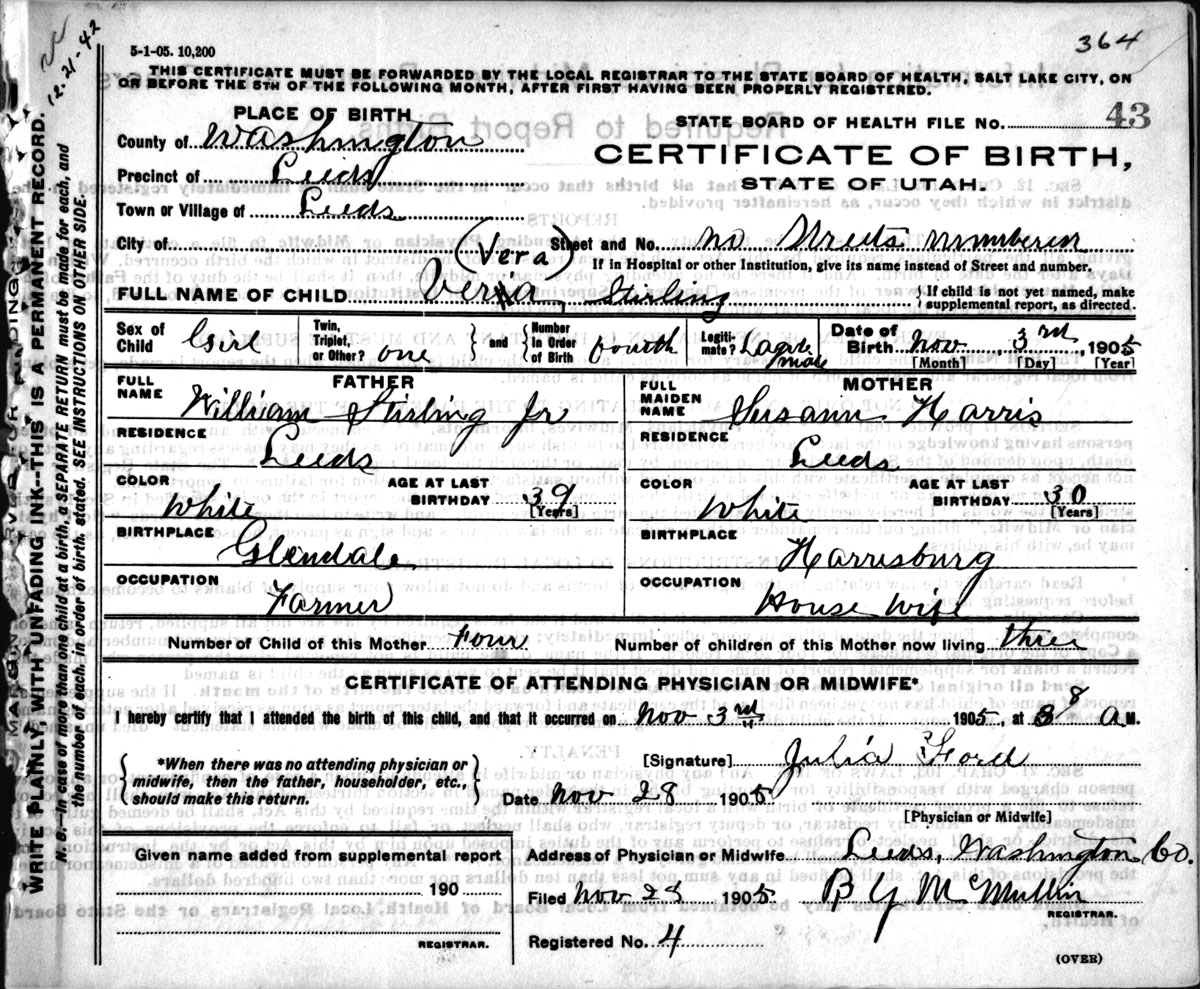 364
5-1-05. 10,200
THIS CERTIFICATE MUST BE FORWARDED BY THE LOCAL REGISTRAR TO THE STATE BOARD OF HEALTH, SALT LAKE CITY, ON
OR BEFORE THE 5TH OF THE FOLLOWING MONTH, AFTER FIRST HAVING BEEN PROPERLY REGISTERED.
PLACE OF BIRTH
STATE BOARD OF HEALTH FILE No. 43
County of Washington
CERTIFICATE OF BIRTH,
STATE OF UTAH.
Precinct of Leeds
Town or Village of Leeds
City of
Street and No. no Streets numbered
(Vera)
If in Hospital or other Institution, give its name instead of Street and number.
FULL NAME OF CHILD Vera, Stirling
{If child is not yet named, make supplemental report, as directed.
Sex of Child Girl
Twin, Triplet, or Other? one
} and { Number in Order of Birth fourth
Legitimate?
Date of Birth Nov 3rd, 1905
[Month] [Day] [Year]
FATHER
FULL NAME William Stirling Jr
RESIDENCE Leeds
COLOR White
AGE AT LAST BIRTHDAY 39 [Years]
BIRTHPLACE Glendale
OCCUPATION Farmer
MOTHER
FULL MAIDEN NAME Susann Harris
RESIDENCE Leeds
COLOR White
AGE AT LAST BIRTHDAY 30 [Years]
BIRTHPLACE Harrisburg
OCCUPATION House Wife
Number of Child of this Mother Four
Number of children of this Mother now living
CERTIFICATE OF ATTENDING PHYSICIAN OR MIDWIFE*
I hereby certify that I attended the birth of this child, and that it occurred on Nov 3rd 1905, at 8 A M.
{*When there was no attending physician or midwife, then the father, householder, etc., should make this return.}
[Signature] Julia Ford
Date Nov 28 1905
[Physician or Midwife]
Given name added from supplemental report
190
REGISTRAR.
Address of Physician or Midwife Leeds, Washington Co.
Filed Nov 28 1905 B Y McMullin
REGISTRAR.
Registered No. 4
(OVER)
12-21-42
WRITE PLAINLY, WITH UNFADING INK--THIS IS A PERMANENT RECORD.
N. B.--In case of more than one child at a birth, a SEPARATE RETURN must be made for each, and
the number of each, in order of birth, stated. SEE INSTRUCTIONS ON OTHER SIDE.